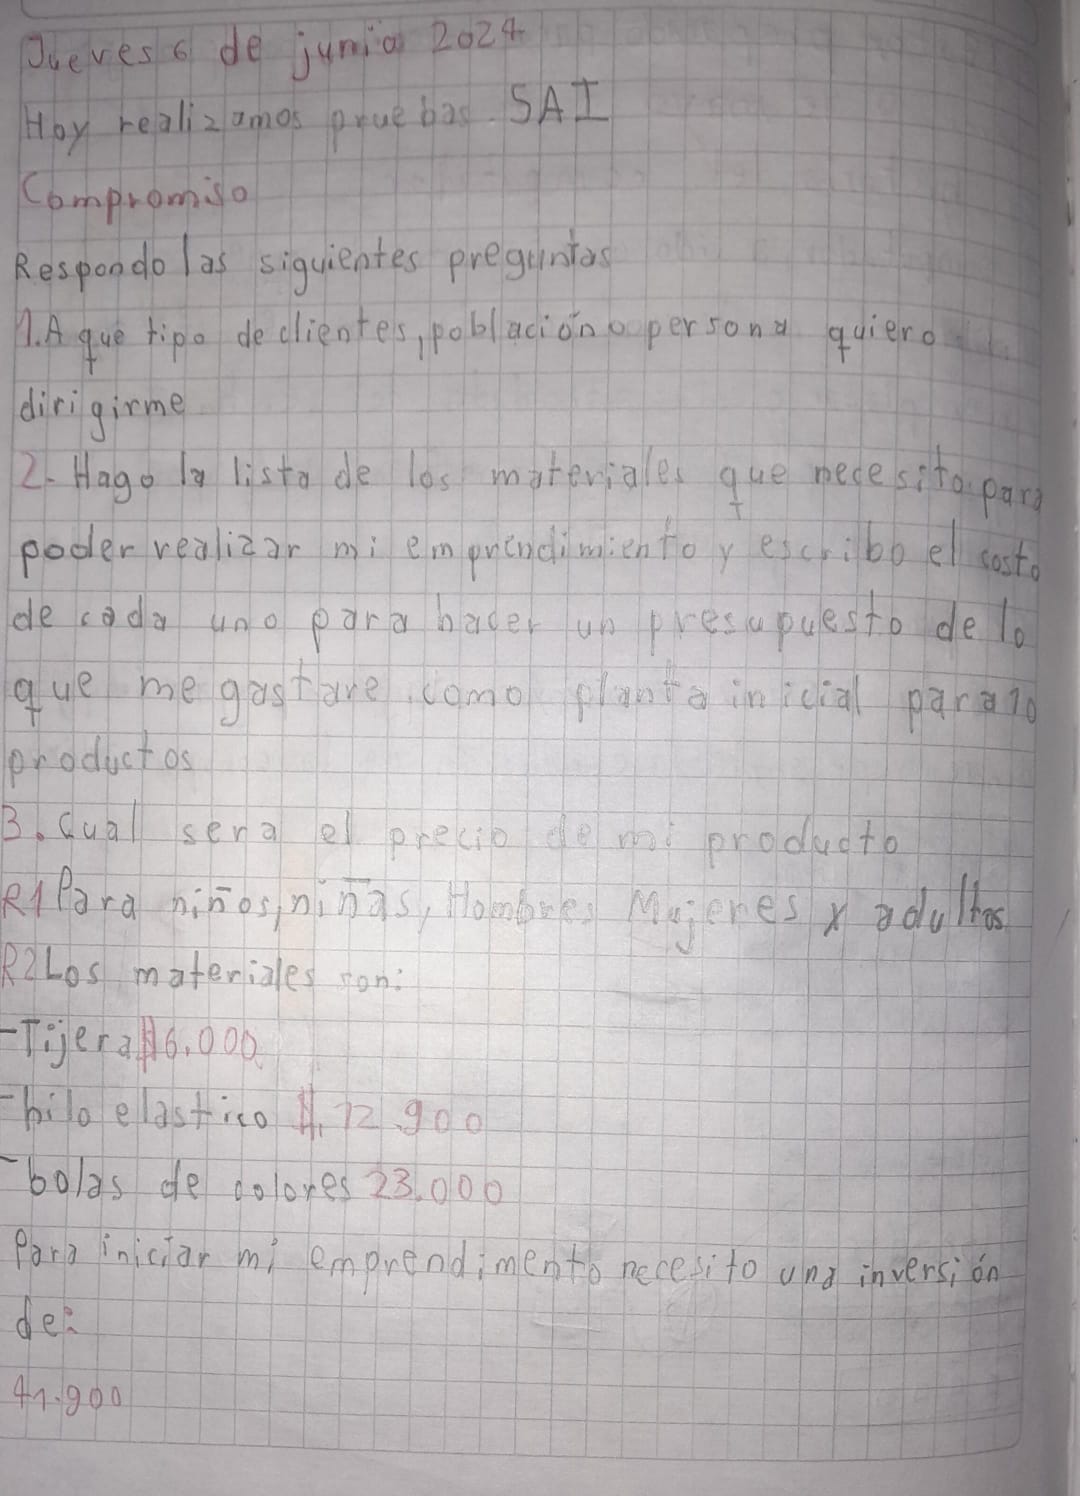 Jueves 6 de junio 2024
Hoy realizamos pruebas SAI
Compromiso
Respondo las siguientes preguntas
1. A que tipo de clientes, población o persona quiero
dirigirme
2. Hago la lista de los materiales que necesito para
poder realizar mi emprendimiento y escribo el costo
de cada uno para hacer un presupuesto de lo
que me gastare como planta inicial para 10
productos
3. Cual sera el precio de mi producto
R1 Para niños, niñas, Hombres Mujeres y adultos
R2 Los materiales son:
-Tijera $6.000
-hilo elastico $12.900
-bolas de colores 23.000
Para iniciar mi emprendimento necesito una inversión
de:
41.900